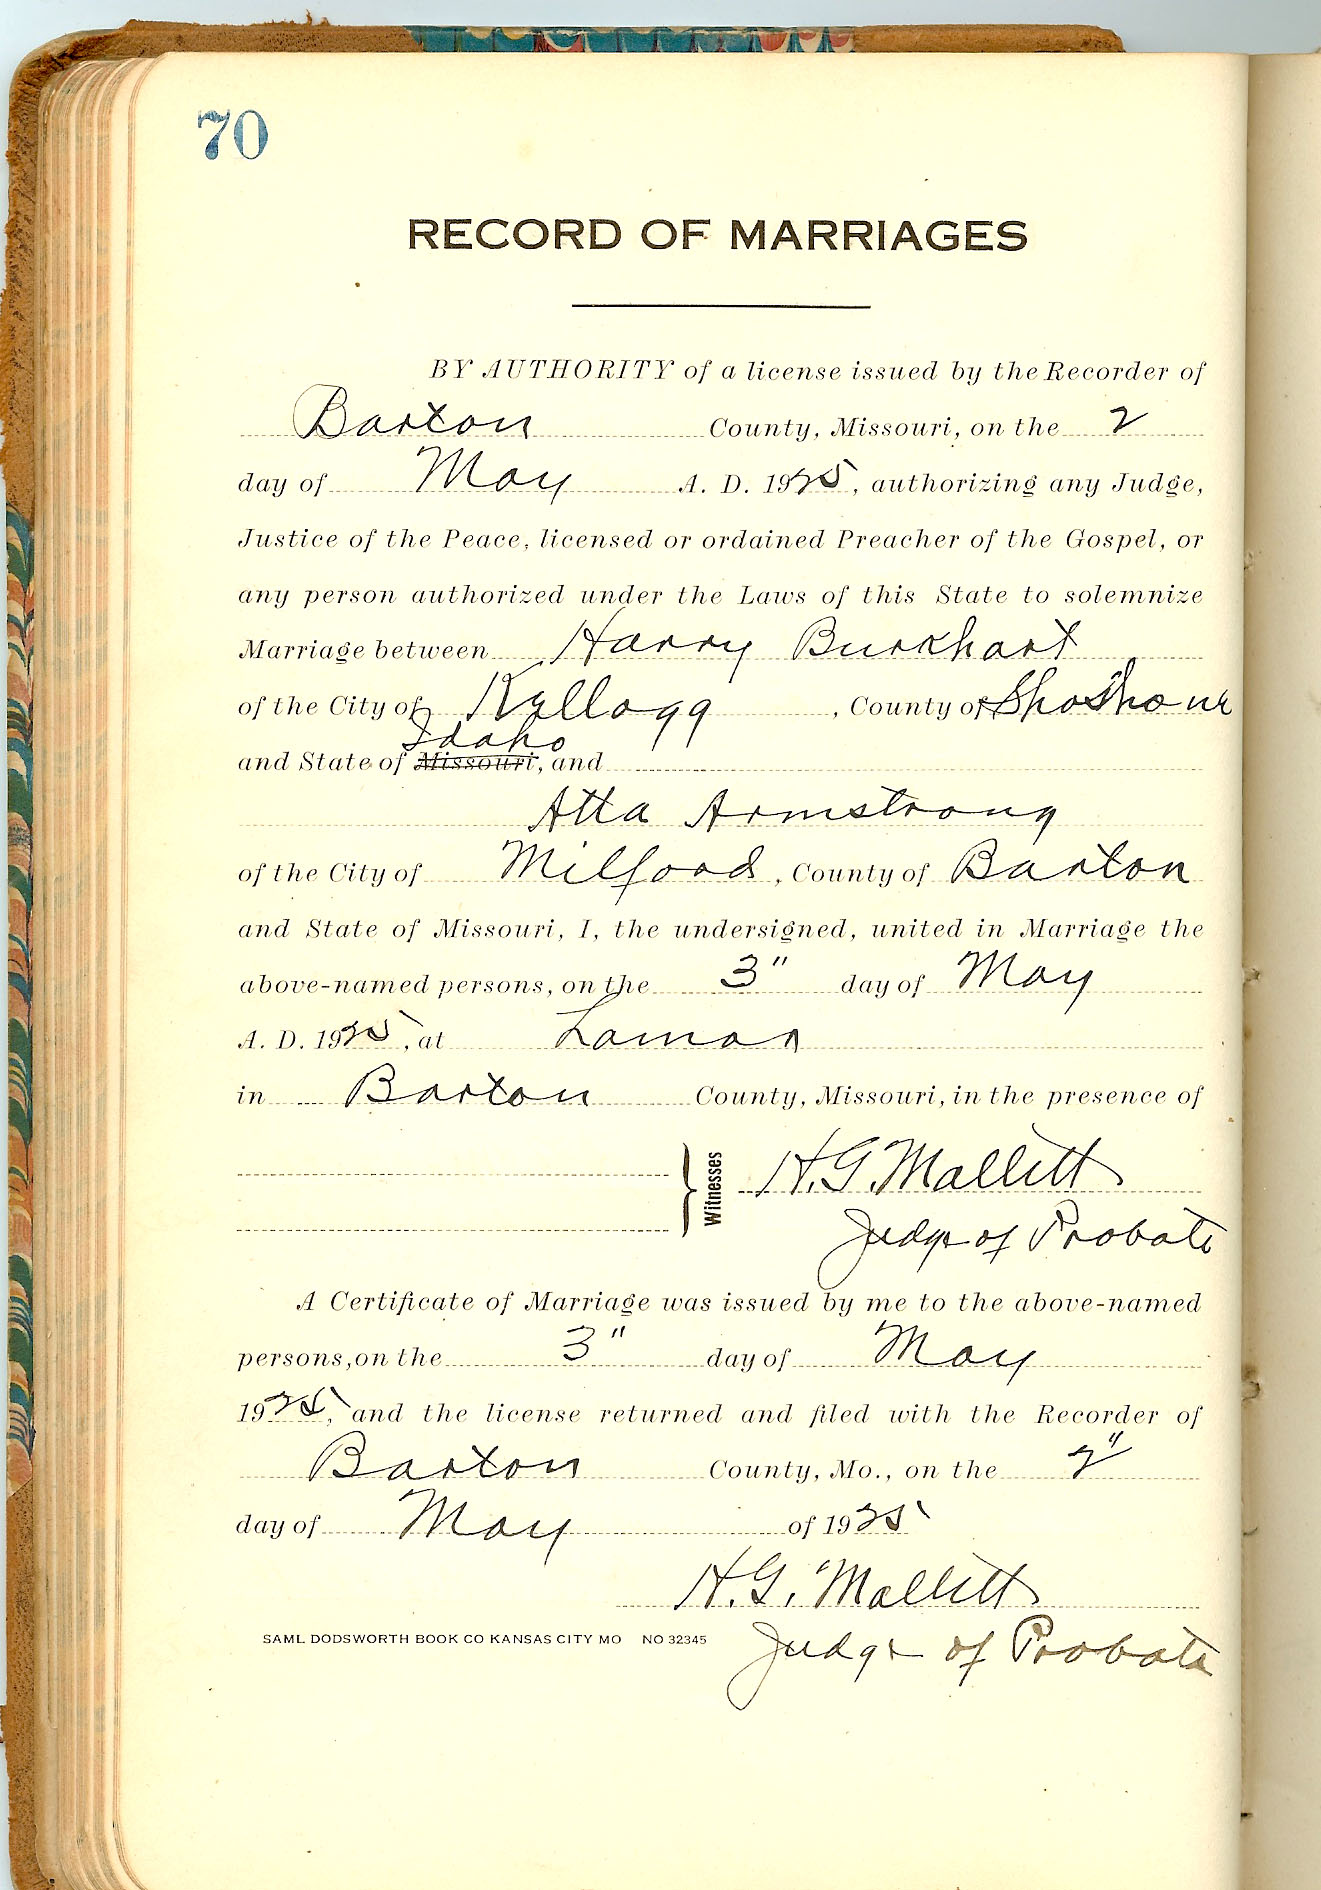 70
RECORD OF MARRIAGES
BY AUTHORITY of a license issued by the Recorder of
Barton County, Missouri, on the 2
day of May A. D. 1925, authorizing any Judge,
Justice of the Peace, licensed or ordained Preacher of the Gospel, or
any person authorized under the Laws of this State to solemnize
Marriage between Harry Burkhart
of the City of Kyllogg, County of Shoshone
Idaho
and State of Missouri, and
Atta Armstrong
of the City of Milford, County of Barton
and State of Missouri, I, the undersigned, united in Marriage the
above-named persons, on the 3" day of May
A. D. 1925, at Lamar
in Barton County, Missouri, in the presence of
Witnesses H. G. Mallitt
Judge of Probate
A Certificate of Marriage was issued by me to the above-named
persons, on the 3" day of May
1925, and the license returned and filed with the Recorder of
Barton County, Mo., on the 2"
day of May of 1925
H. G. Mallitt
SAML DODSWORTH BOOK CO KANSAS CITY MO NO 32345
Judge of Probate